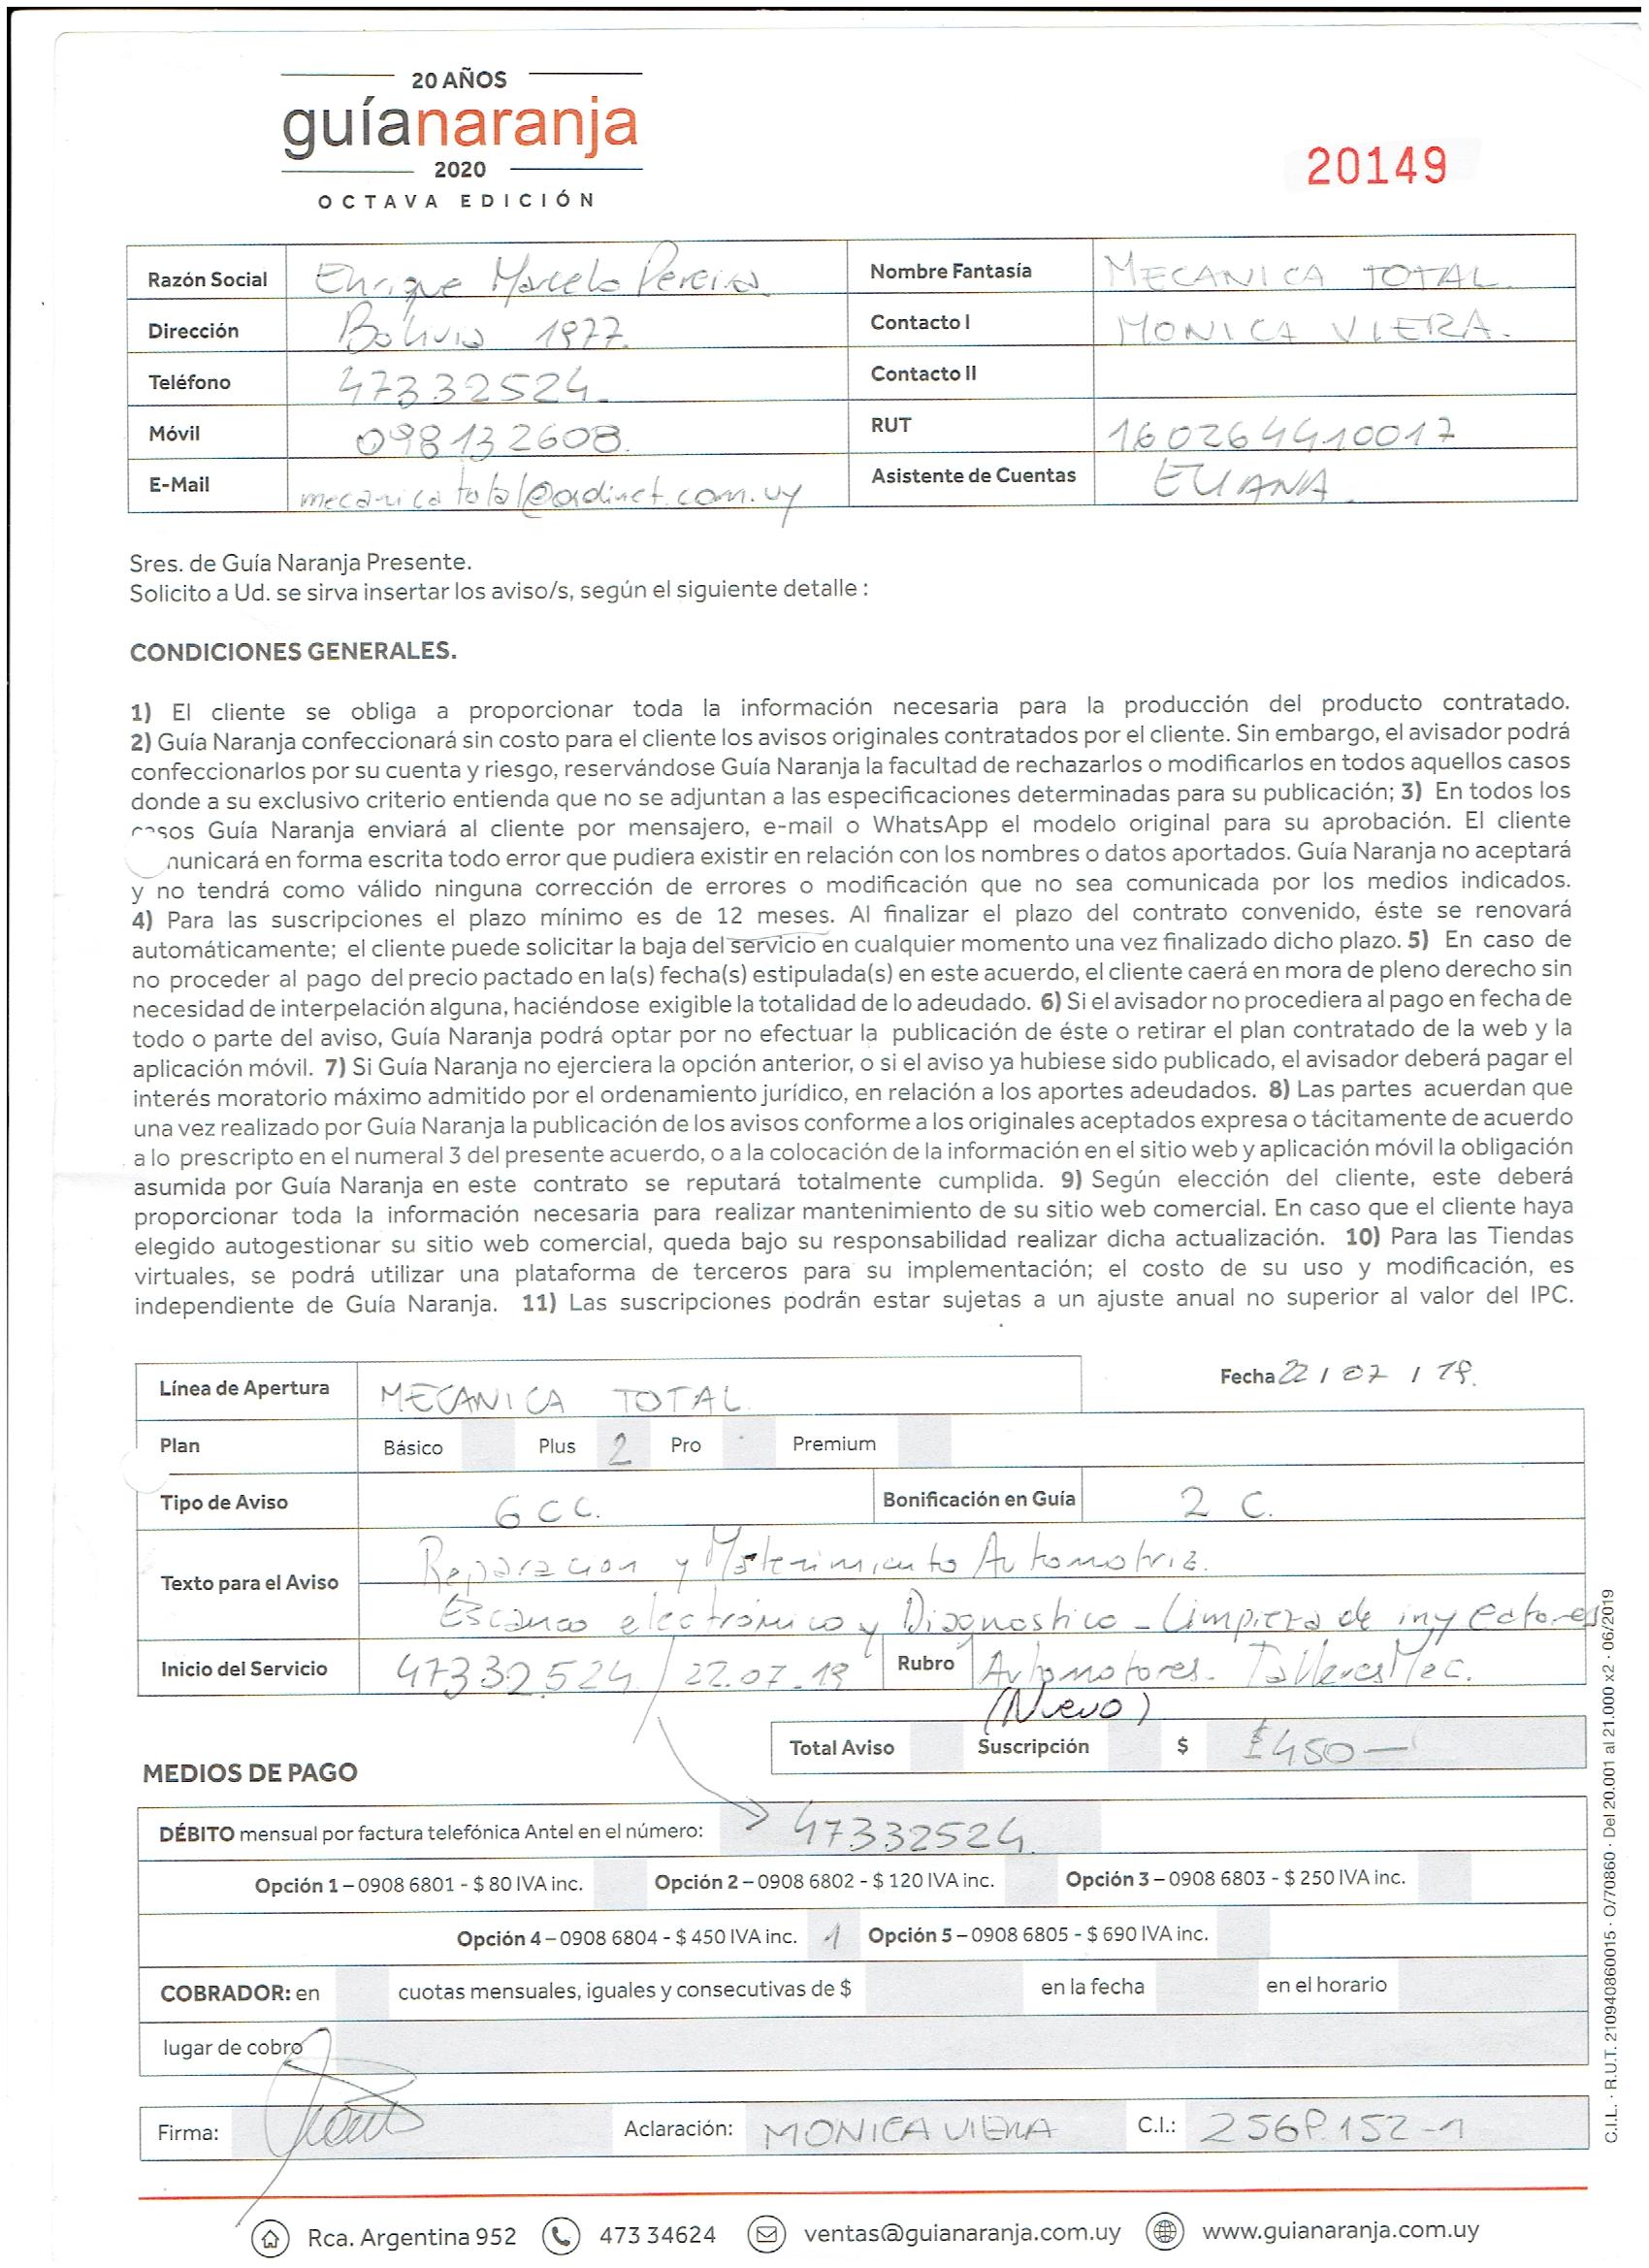 20 AÑOS
guíanaranja
2020
OCTAVA EDICIÓN
20149
Razón Social Enrique Marcelo Pereira Nombre Fantasía MECANICA TOTAL.
Dirección Bolivia 1977. Contacto I MONICA VIERA.
Teléfono 47332524. Contacto II
Móvil 098132608. RUT 160264410017
E-Mail mecanicatotal@adinet.com.uy Asistente de Cuentas ELIANA.
Sres. de Guía Naranja Presente.
Solicito a Ud. se sirva insertar los aviso/s, según el siguiente detalle :
CONDICIONES GENERALES.
1) El cliente se obliga a proporcionar toda la información necesaria para la producción del producto contratado.
2) Guía Naranja confeccionará sin costo para el cliente los avisos originales contratados por el cliente. Sin embargo, el avisador podrá
confeccionarlos por su cuenta y riesgo, reservándose Guía Naranja la facultad de rechazarlos o modificarlos en todos aquellos casos
donde a su exclusivo criterio entienda que no se adjuntan a las especificaciones determinadas para su publicación; 3) En todos los
casos Guía Naranja enviará al cliente por mensajero, e-mail o WhatsApp el modelo original para su aprobación. El cliente
municará en forma escrita todo error que pudiera existir en relación con los nombres o datos aportados. Guía Naranja no aceptará
y no tendrá como válido ninguna corrección de errores o modificación que no sea comunicada por los medios indicados.
4) Para las suscripciones el plazo mínimo es de 12 meses. Al finalizar el plazo del contrato convenido, éste se renovará
automáticamente; el cliente puede solicitar la baja del servicio en cualquier momento una vez finalizado dicho plazo. 5) En caso de
no proceder al pago del precio pactado en la(s) fecha(s) estipulada(s) en este acuerdo, el cliente caerá en mora de pleno derecho sin
necesidad de interpelación alguna, haciéndose exigible la totalidad de lo adeudado. 6) Si el avisador no procediera al pago en fecha de
todo o parte del aviso, Guía Naranja podrá optar por no efectuar la publicación de éste o retirar el plan contratado de la web y la
aplicación móvil. 7) Si Guía Naranja no ejerciera la opción anterior, o si el aviso ya hubiese sido publicado, el avisador deberá pagar el
interés moratorio máximo admitido por el ordenamiento jurídico, en relación a los aportes adeudados. 8) Las partes acuerdan que
una vez realizado por Guía Naranja la publicación de los avisos conforme a los originales aceptados expresa o tácitamente de acuerdo
a lo prescripto en el numeral 3 del presente acuerdo, o a la colocación de la información en el sitio web y aplicación móvil la obligación
asumida por Guía Naranja en este contrato se reputará totalmente cumplida. 9) Según elección del cliente, este deberá
proporcionar toda la información necesaria para realizar mantenimiento de su sitio web comercial. En caso que el cliente haya
elegido autogestionar su sitio web comercial, queda bajo su responsabilidad realizar dicha actualización. 10) Para las Tiendas
virtuales, se podrá utilizar una plataforma de terceros para su implementación; el costo de su uso y modificación, es
independiente de Guía Naranja. 11) Las suscripciones podrán estar sujetas a un ajuste anual no superior al valor del IPC.
Fecha 22 / 07 / 19.
Línea de Apertura MECANICA TOTAL.
Plan Básico Plus 2 Pro Premium
Tipo de Aviso 6 CC. Bonificación en Guía 2 C.
Texto para el Aviso Reparacion y Matenimiento Automotriz.
Escaneo electrónico y Diagnostico - Limpieza de inyectores
Inicio del Servicio 47332524 / 22.07.19 Rubro Automotores - Talleres Mec.
(Nuevo)
Total Aviso Suscripción $ $450 —
MEDIOS DE PAGO
DÉBITO mensual por factura telefónica Antel en el número: 47332524.
Opción 1 – 0908 6801 - $ 80 IVA inc. Opción 2 – 0908 6802 - $ 120 IVA inc. Opción 3 – 0908 6803 - $ 250 IVA inc.
Opción 4 – 0908 6804 - $ 450 IVA inc. 1 Opción 5 – 0908 6805 - $ 690 IVA inc.
COBRADOR: en cuotas mensuales, iguales y consecutivas de $ en la fecha en el horario
lugar de cobro
Firma: Aclaración: MONICA VIERA C.I.: 2568.152-1
Rca. Argentina 952 473 34624 ventas@guianaranja.com.uy www.guianaranja.com.uy
C.I.L. · R.U.T. 210940860015 · O/70860 · Del 20.001 al 21.000 x2 · 06/2019